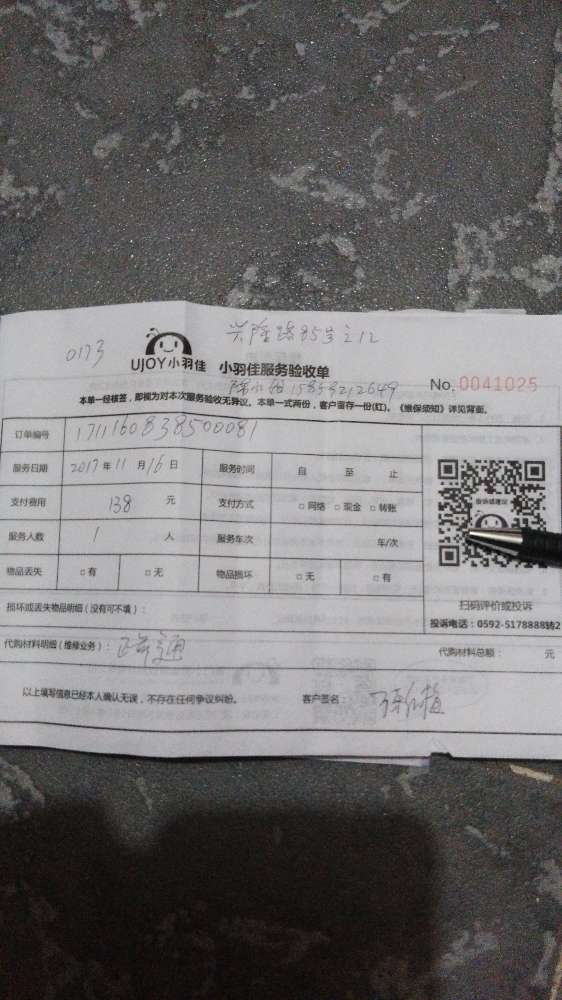 兴隆路85号之12
0173
UJOY小羽佳 小羽佳服务验收单
No.0041025
本单一经核签，即视为对本次服务验收无异议。本单一式两份，客户留存一份(红)。《维保须知》详见背面。
订单编号 1711160838500081
服务日期 2017年11月16日 服务时间 自 至 止
支付费用 138 元 支付方式 □网络 □现金 □转账
服务人数 1 人 服务车次 年/次
物品丢失 □有 □无 物品损坏 □无 □有
扫码评价或投诉
损坏或丢失物品明细(没有可不填)：
投诉电话：0592-5178888转2
代购材料明细(维修业务)：
代购材料总额： 元
以上填写信息已经本人确认无误，不存在任何争议纠纷。 客户签名：